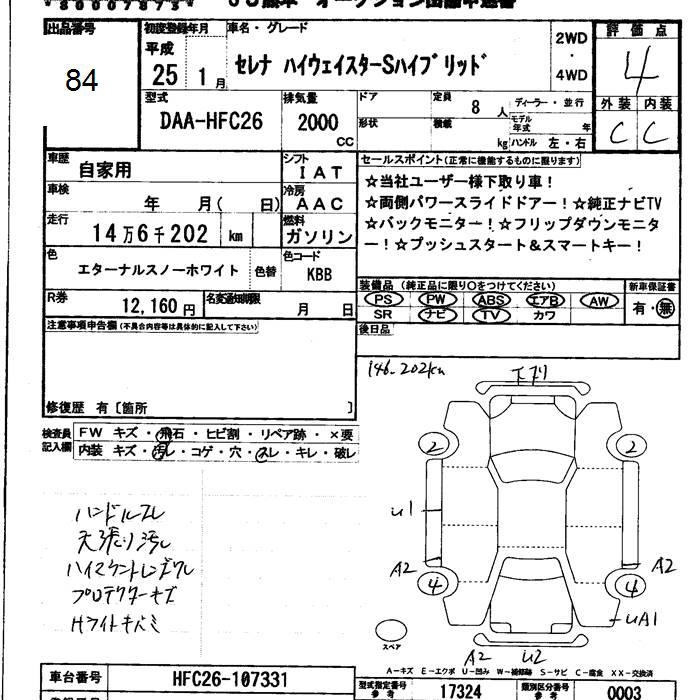 出品番号
84
初度登録年月
平成
25 1月
車名・グレード
セレナ ハイウェイスターSハイブリッド
2WD
・
4WD
評価点
4
外装 内装
C C
型式
DAA-HFC26
排気量
2000
CC
ドア
形状
定員
8人
積載
kg
ディーラー・並行
モデル年式 年
ハンドル 左・右
車歴
自家用
シフト
IAT
車検
年 月( 日)
冷房
AAC
走行
14万6千202 km
燃料
ガソリン
色
エターナルスノーホワイト 色替
色コード
KBB
R券
12,160円
名変通知期限
月 日
セールスポイント(正常に機能するものに限ります)
☆当社ユーザー様下取り車!
☆両側パワースライドドアー!☆純正ナビTV
☆バックモニター!☆フリップダウンモニタ
ー!☆プッシュスタート&スマートキー!
装備品 (純正品に限り○をつけてください)
PS PW ABS エアB AW
SR ナビ TV カワ
新車保証書
有・無
後日品
注意事項申告欄(不具合内容等は具体的に記入して下さい)
修復歴 有〔箇所 〕
検査員記入欄
FW キズ・飛石・ヒビ割・リペア跡・×要
内装 キズ・汚レ・コゲ・穴・スレ・キレ・破レ
146-202km
2 2
U1
A2 A2
4 4
UA1
A2 U2
スペア
ハンドルスレ
天張り汚レ
プロテクターキズ
A-キズ E-エクボ U-凹み W-補修跡 S-サビ C-腐食 XX-交換済
車台番号
HFC26-107331
型式指定番号
参考
17324
類別区分番号
参考
0003